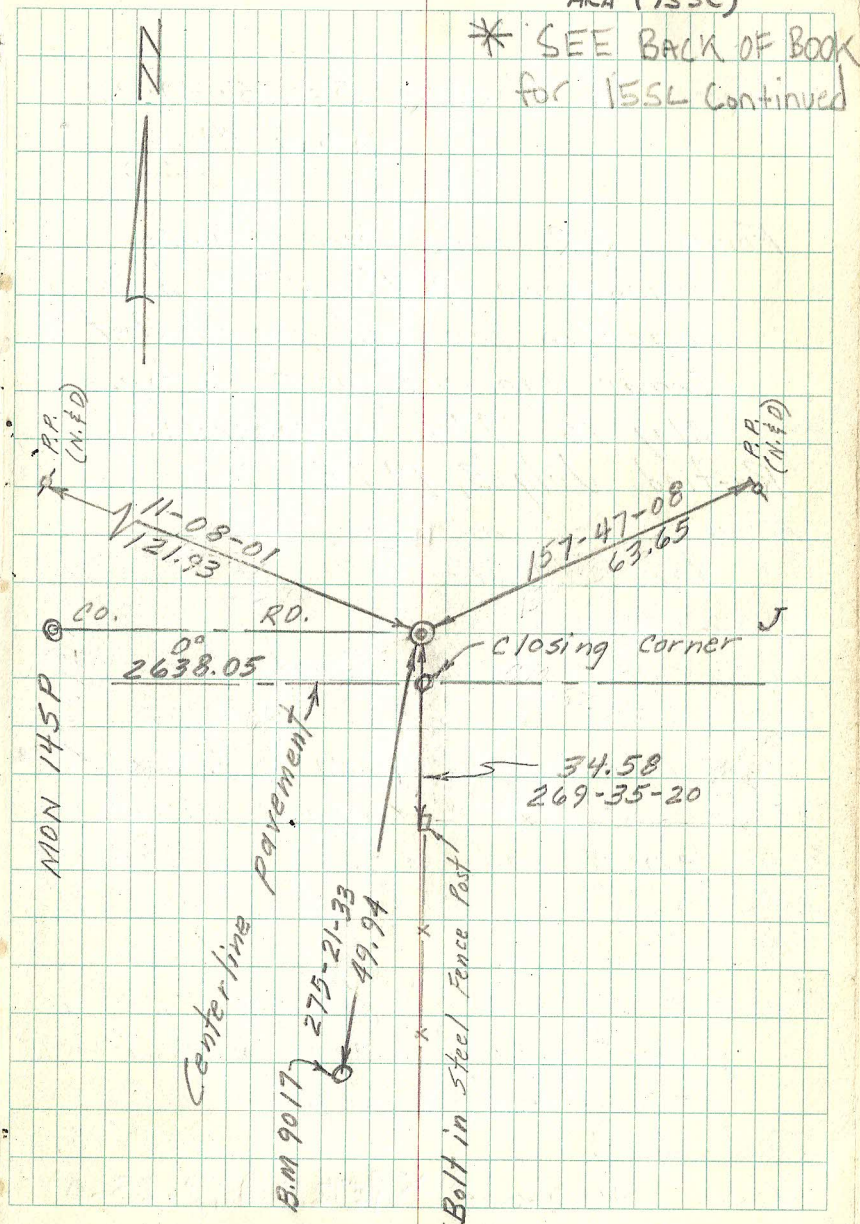 AKA (155C)
* SEE BACK OF BOOK
for 155L Continued
N
P.P.
(N.&D)
P.P.
(N.&D)
11-08-01
121.93
157-47-08
63.65
CO. RD. J
0°
2638.05
MON 145P
Closing Corner
Centerline Pavement
34.58
269-35-20
275-21-33
49.94
B.M 9017
Bolt in Steel Fence Post